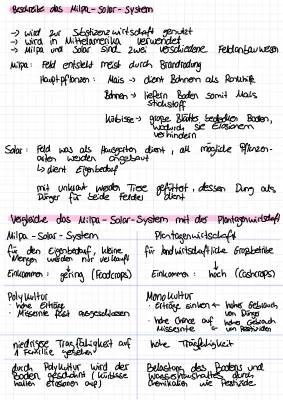 Beschreibe das Milpa-Solar-System
→ wird zur Subsistenzwirtschaft genutzt
→ wird in Mittelamerika verwendet
→ Milpa und Solar sind zwei verschiedene Feldanbauweisen
Milpa: Feld entsteht meist durch Brandrodung
Hauptpflanzen: Mais → dient Bohnen als Rankhilfe
Bohnen → liefern Boden somit Mais
Stickstoff
Kürbisse → große Blätter bedecken Boden,
wodurch sie Erosionen
verhindern
Solar: Feld was als Hausgarten dient, all mögliche Pflanzen-
arten werden angebaut
↳ dient Eigenbedarf
mit unkraut werden Tiere gefüttert, dessen Dung als
Dünger für beide Felder dient
Vergleiche das Milpa-Solar-System mit der Plantagenwirtschaft
Milpa-Solar-System
Plantagenwirtschaft
für den Eigenbedarf, kleine
Mengen werden nur verkauft
für landwirtschaftliche Großbetriebe
Einkommen: gering (Foodcrops)
Einkommen: hoch (Cashcrops)
Polykultur
• hohe Erträge
• Missernte fast ausgeschlossen
Monokultur
• Erträge sinken ← hohe Gebrauch
von Dünger
• hohe Chance auf ← hohe Gebrauch
Missernte von Pestiziden
niedrigere Tragfähigkeit auf
1 Familie gesehen
hohe Tragfähigkeit
durch Polykultur wird der
Boden geschont (Kürbisse
halten Erosionen auf)
Belastung des Bodens und
Wasserhaushaltes durch
Chemikalien wie Pestizide